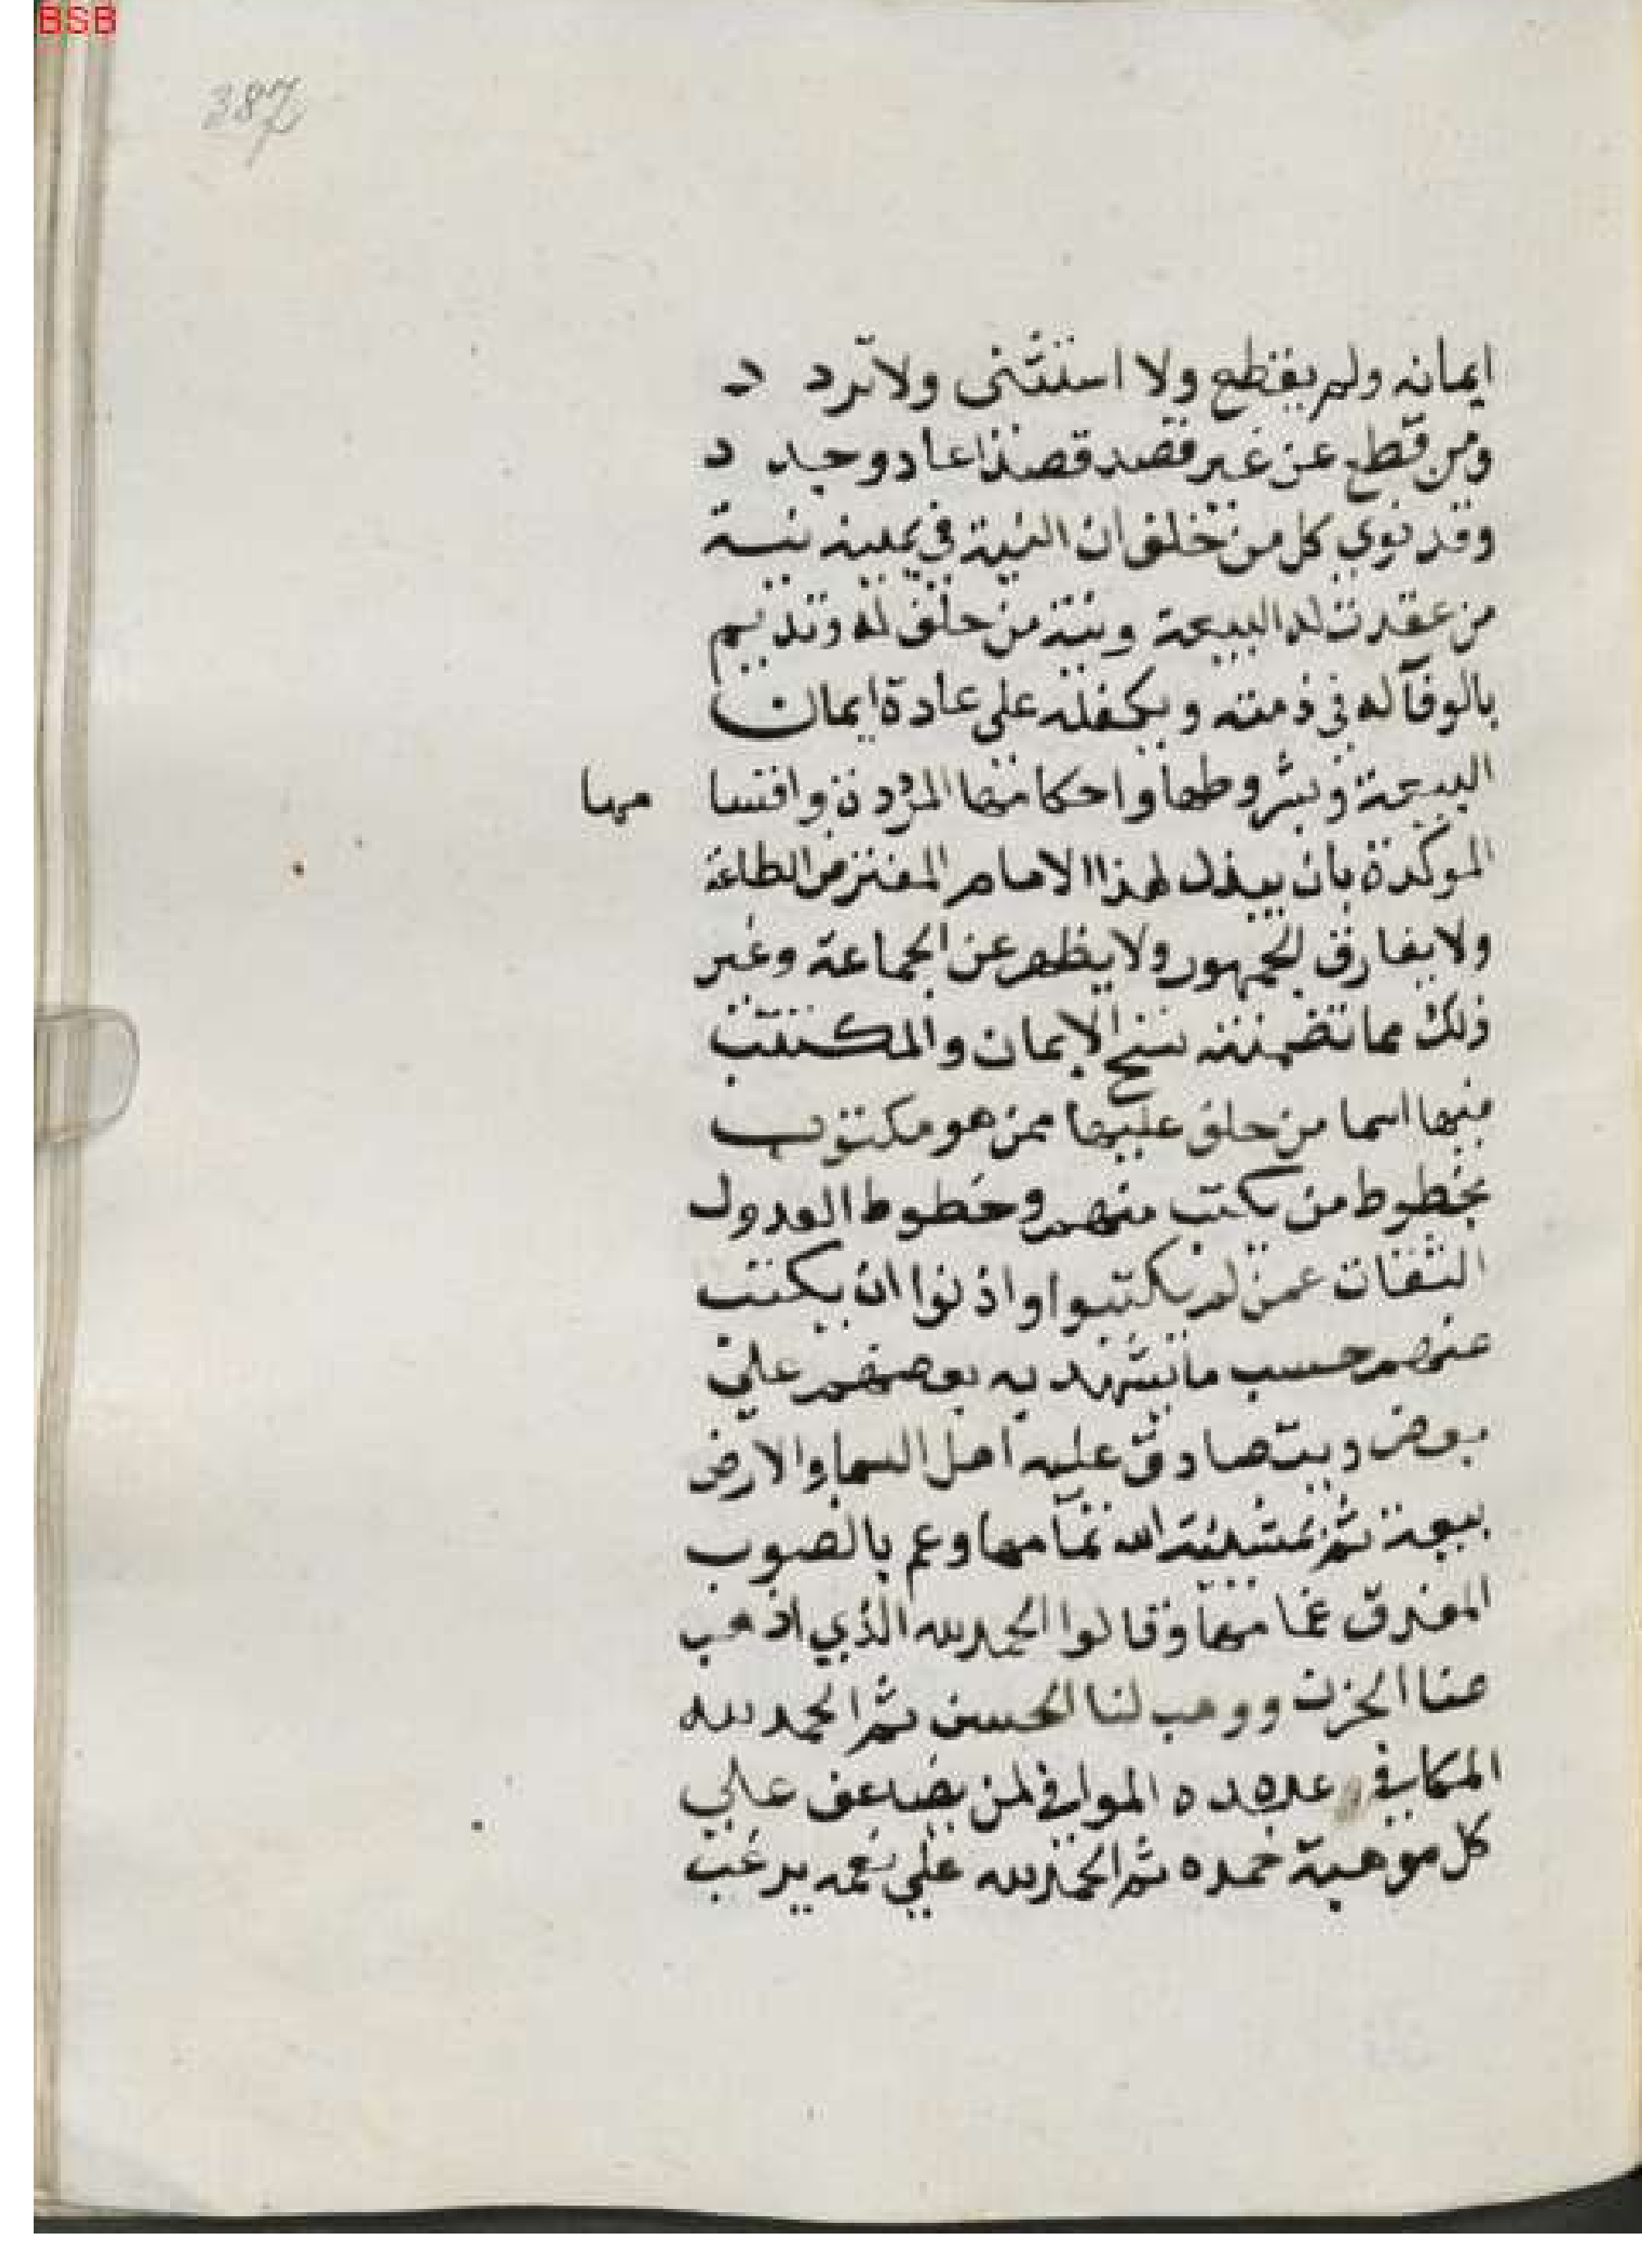 BSB
387
ايمانه ولم يقطع ولا استثنى ولا تردد د
ومن قطع عن غير قصد قصدا عاد وجد د
وقد نوي كل من حلف ان النية في يمينه نية
من عقدت له البيعة ونية من حلف له وتذمم
بالوفآ له في ذمته وبكفلته على عادة ايمان
البيعة وشروطها واحكامها المرددة واقسا مها
الموكدة بان يبذل لهذا الامام المفترض الطاعة
ولا يفارق الجمهور ولا يظهر عن الجماعة وغير
ذلك مما تضمنته نسخ الايمان والمكتتب
فيها اسما من حلف عليها ممن هو مكتوب
بخطوط من يكتب منهم وخطوط العدول
الثقات عمن لم يكتبوا واذنوا ان يكتب
عنهم حسب ما يشهد به بعضهم على
بعض ويتصادق عليه اهل السما والارض
بيعة تم بمشية الله تمامها وعم بالصوب
المغدق غمامها وقالوا الحمد لله الذي اذهب
عنا الحزن ووهب لنا الحسن ثم الحمد لله
الكافي عبده الموافي لمن يضاعف علي
كل موهبة حمده ثم الحمد لله علي نعمه يرغب